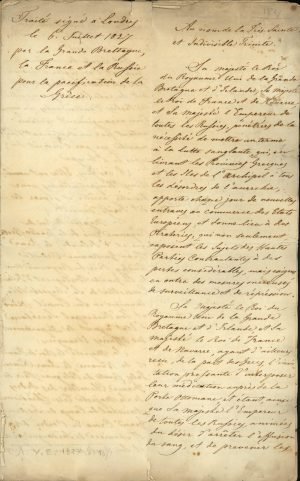 Traité signé à Londres
le 6 Juillet 1827
par la Grande Bretagne,
la France et la Russie
pour la pacification de la
Grèce.
Au nom de la Très Sainte
et Indivisible Trinité.
Sa majesté le Roi
du Royaume Uni de la Grande
Bretagne et d'Irlande, Sa Majesté
le Roi de France et de Navarre
et Sa Majesté l'Empereur de
toutes les Russies, pénétrés de la
nécessité de mettre un terme
à la lutte sanglante qui, en
livrant les Provinces Grecques
et les Iles de l'Archipel à tous
les désordres de l'anarchie,
apporte chaque jour de nouvelles
entraves au commerce des Etats
Européens, et donne lieu à des
Pirateries, qui non seulement
exposent les Sujets des Hautes
Parties Contractantes à des
pertes considérables, mais exigent
en outre des mesures onéreuses
de surveillance et de répression.
Sa Majesté le Roi du
Royaume Uni de la Grande
Bretagne et d'Irlande et Sa
Majesté le Roi de France
et de Navarre, ayant d'ailleurs
reçu, de la part des Grecs l'invi-
tation pressante d'interposer
leur médiation auprès de la
Porte Ottomane et étant ainsi
que Sa Majesté l'Empereur
de toutes les Russies, animés
du désir d'arrêter l'effusion
du sang, et de prévenir les